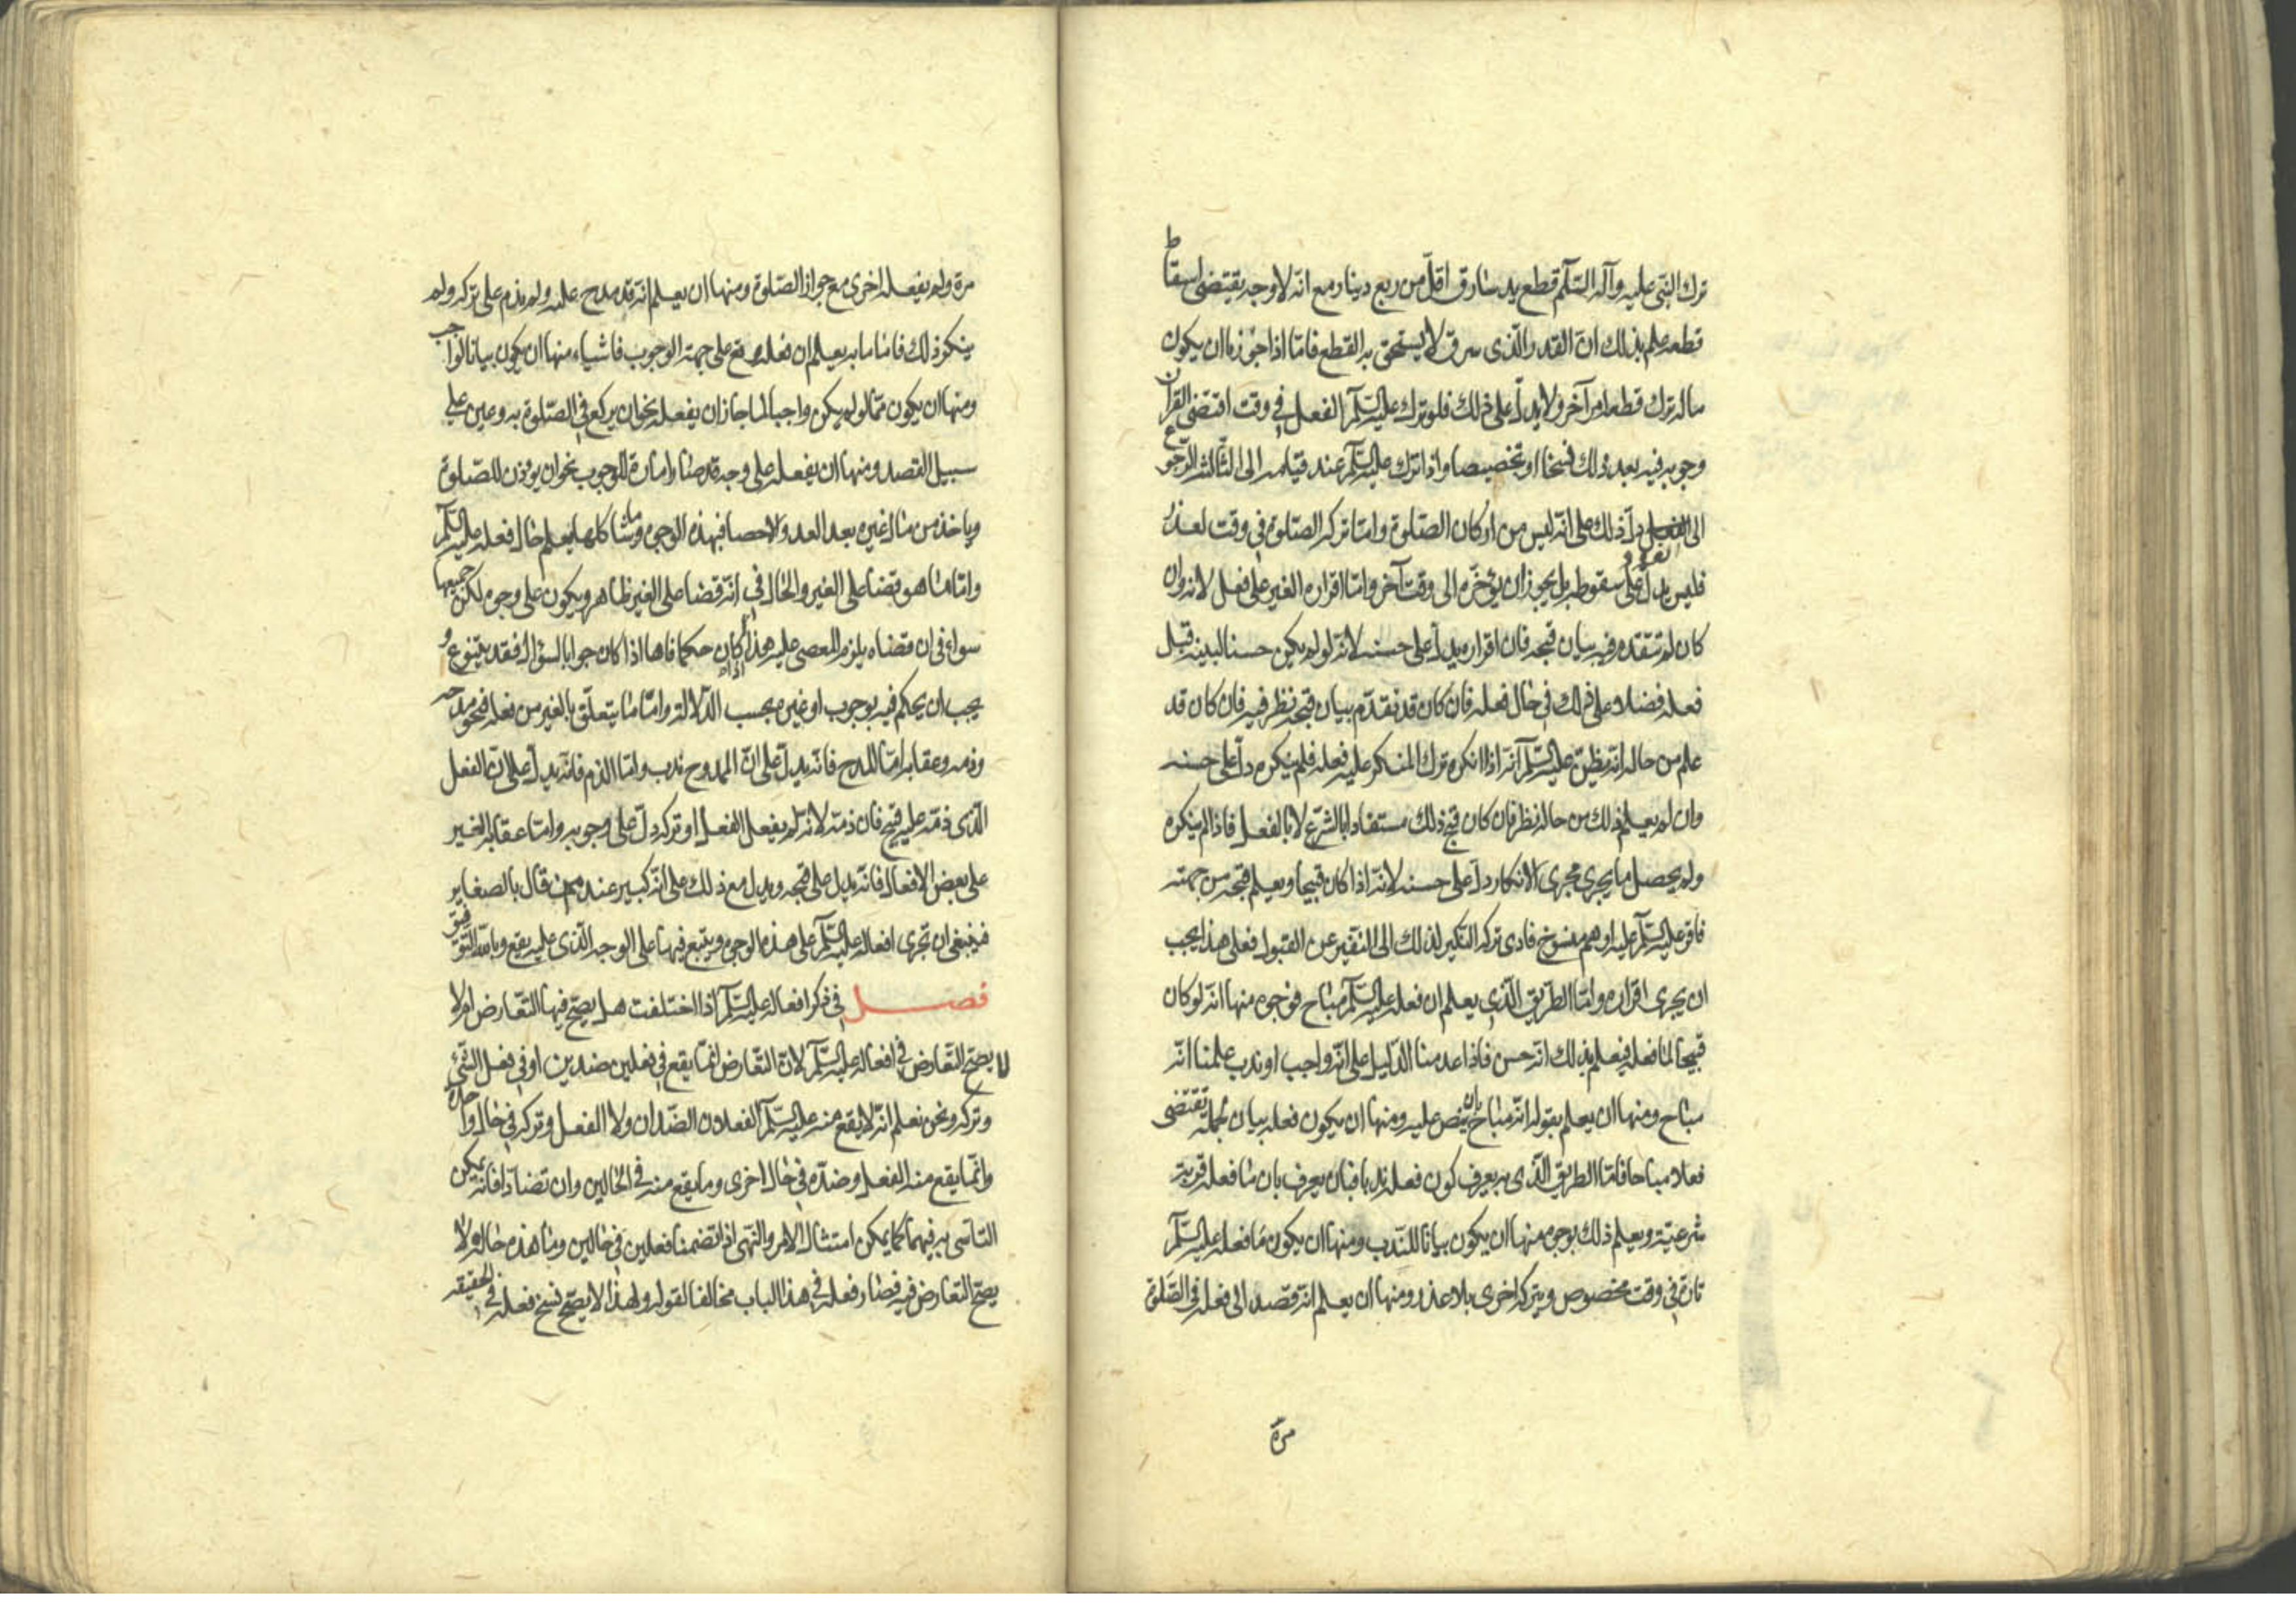 ترك النبى عليه وآله السّلم قطع يد سارق اقلّ من ربع دينار مع انّه لا وجه يقتضى اسقاط
قطعه علم بذلك انّ القدر الّذى سرق لا يستحق به القطع فامّا اذا جوّزنا ان يكون
ماله ترك قطعه امر آخر ولا يدلّ على ذلك فلو ترك عليه السّلم الفعل فى وقت اقتضى القرآن
وجوبه فيه بعد ذلك فسخا او تخصيصا واذا ترك عليه السّلم عند قيامه الى الثّالثة الرّجوع
الى القعود دلّ ذلك على انّه ليس من اركان الصّلوة وامّا تركه الصّلوة فى وقت لعذر
فليس يدلّ على سقوطه بل يجوز ان يؤخّره الى وقت آخر وامّا اقراره الغير على فعل لانه وان
كان لم تتقدّم فيه بيان قبحه فان اقراره يدلّ على حسنه لانّه لو لم يكن حسنا لبينه قبل
فعله فضلا على ذلك فى حال فعله فان كان قد تقدّم بيان قبحه نظر فيه فان كان قد
علم من حاله انه يظنّ عليه السّلم انّه اذا انكره ترك المنكر عليه فعله فلم ينكره دلّ على حسنه
وان لم يعلم ذلك من حاله نظر فان كان قبح ذلك مستفادا بالشرع لا بالفعل فاذا لم ينكره
ولم يحصل ما يجرى مجرى الانكار دلّ على حسنه لانّه اذا كان قبيحا ويعلم قبحه من جهته
فاقرّ عليه السّلم عليه اوهم منسوخ فادى تركه النكير لذلك الى التنفير عن القبول فعلى هذا يجب
ان يجرى اقراره وامّا الطّريق الّذى يعلم ان فعله عليه السّلم مباح فوجوه منها انّه لو كان
قبيحا لما فعله فيعلم بذلك انّه حسن فاذا عدمنا الدّليل على انّه واجب او ندب علمنا انّه
مباح ومنها ان يعلم بقوله انّه مباح بان ينص عليه ومنها ان يكون فعله بيان لجملة تقتضى
فعلا مباحا فامّا الطريق الّذى به يعرف كون فعله ندبا فبان يعرف بان ما فعله قربة
شرعيّة ويعلم ذلك بوجوه منها ان يكون بيانا للنّدب ومنها ان يكون مما فعله عليه السّلم
تارة فى وقت مخصوص ويتركه اخرى بلا عذر ومنها ان يعلم انّه قصد الى فعله فى الصّلوة
مرة
مرة ولم يفعله اخرى مع جواز الصّلوة ومنها ان يعلم انّه قد مدح عليه ولم يذم على تركه ولم
ينكر ذلك فامّا ما به يعلم ان فعله وقع على جهة الوجوب فاشياء منها ان يكون بيانا لواجب
ومنها ان يكون ممّا لو لم يكن واجبا لما جاز ان يفعله نحو ان يركع فى الصّلوة به وعين على
سبيل القصد ومنها ان يفعله على وجه قد صار امارة للوجوب نحو ان يوذن للصّلوة
وياخذ من مال غيره بعد العد والاحصا فبهذه الوجوه وما شاكلها يعلم حال فعله عليه السّلم
وامّا ما هو قضا على الغير والحال فى انّه قضا على الغير ظاهر ويكون على وجوه لكن جميعها
سواء فى ان قضاه يلزم المعصى عليه هذا اذا كان حكما فاما اذا كان جوابا لسؤال فقد يتنوع و
يجب ان يحكم فيه بوجوب او غيره بحسب الدّلالة وامّا ما يتعلّق بالغير من فعله فنحو مدحه
وذمه وعقابه امّا المدح فانّه يدلّ على انّ الممدوح ندب وامّا الذم فانّه يدلّ على انّ الفعل
الّذى ذمّه عليه قبيح فان ذمّه لانّه لم يفعل الفعل او تركه دلّ على وجوبه وامّا عقابه الغير
على بعض الافعال فانّه يدل على قبحه ويدل مع ذلك على انّه كبير عند من قال بالصغاير
فينبغى ان تجرى افعاله عليه السّلم على هذه الوجوه ويتبع فيها على الوجه الّذى عليه يقع وبالله التّوفيق
فصل فى ذكر افعاله عليه السّلم اذا اختلفت هل يصحّ فيها التّعارض ام لا
لا يصحّ التّعارض فى افعاله عليه السّلم لانّ التّعارض انّما يقع فى فعلين ضدين او فى فعل الشّئ
وتركه ونحن نعلم انّه لا يقع منه عليه السّلم الفعلان الضّدان ولا الفعل وتركه فى حال واحدة
وانّما يقع منه الفعل وضدّه فى حال اخرى وما يقع منه فى الحالين وان تضادّا فانّه يمكن
التاسّى به فيهما كما يمكن امتثال الامر والنّهى اذا تضمنا فعلين فى حالين وما هذه حاله لا
يصحّ التعارض فيه فصار فعله فى هذا الباب مخالفا لقوله ولهذا لا يصحّ نسخ فعله فى الحقيقه